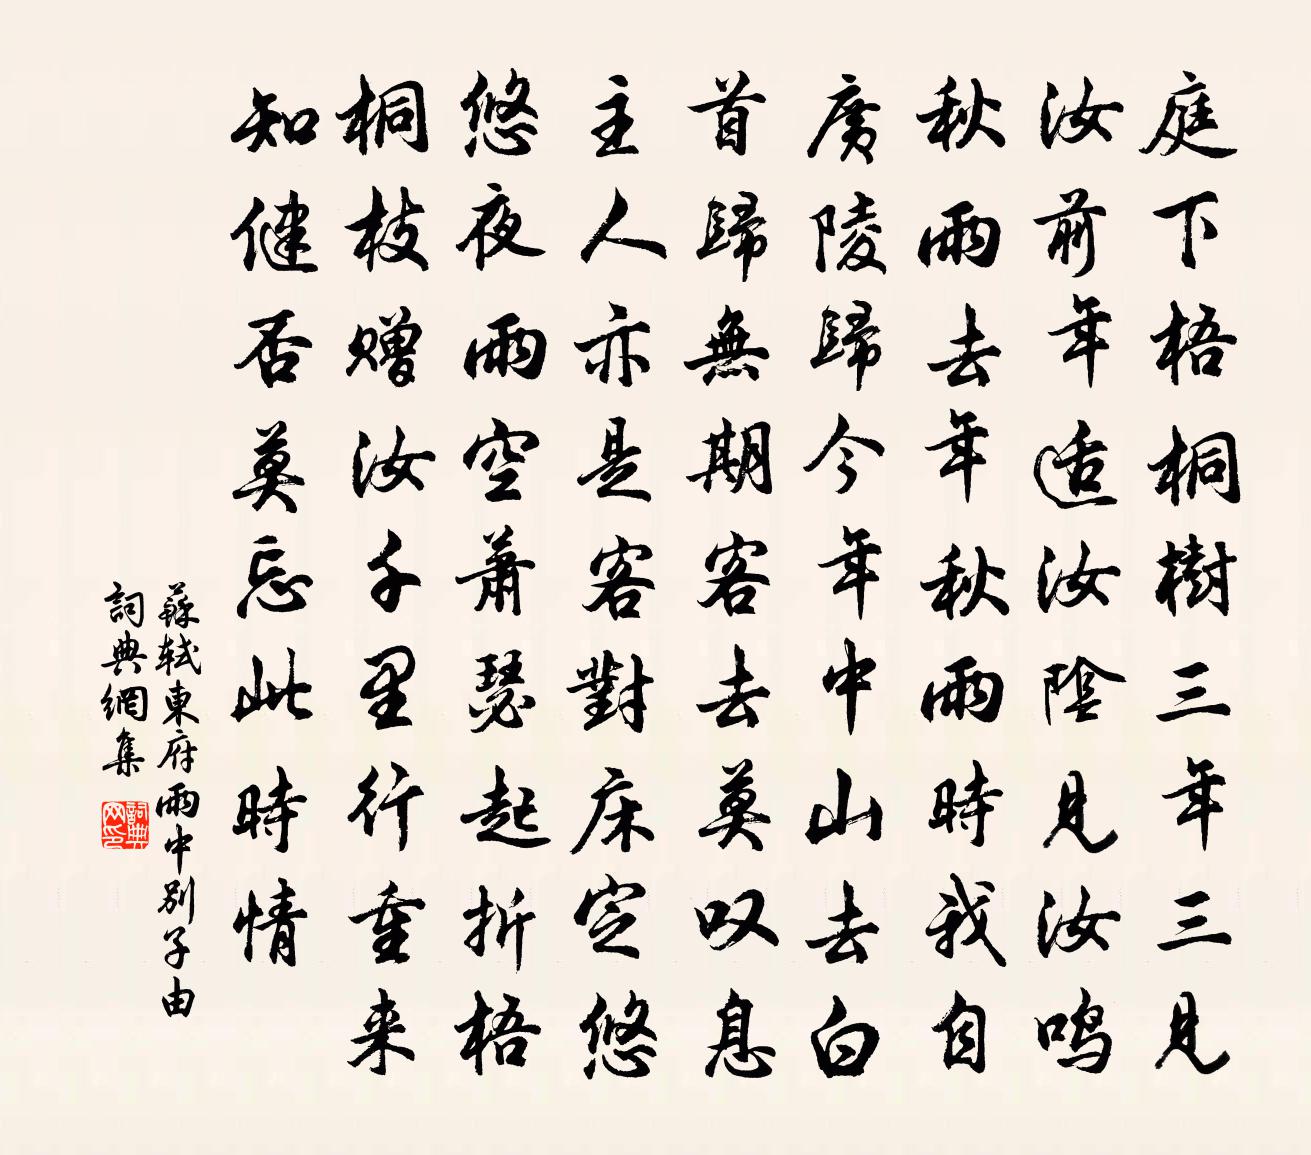 庭下梧桐樹三年三見
汝前年适汝陰見汝鳴
秋雨去年秋雨時我自
廣陵歸今年中山去白
首歸無期客去莫叹息
主人亦是客對床定悠
悠夜雨空蕭瑟起折梧
桐枝贈汝千里行重来
知健否莫忘此時情
蘇軾東府雨中別子由
詞典網集
詞典网印